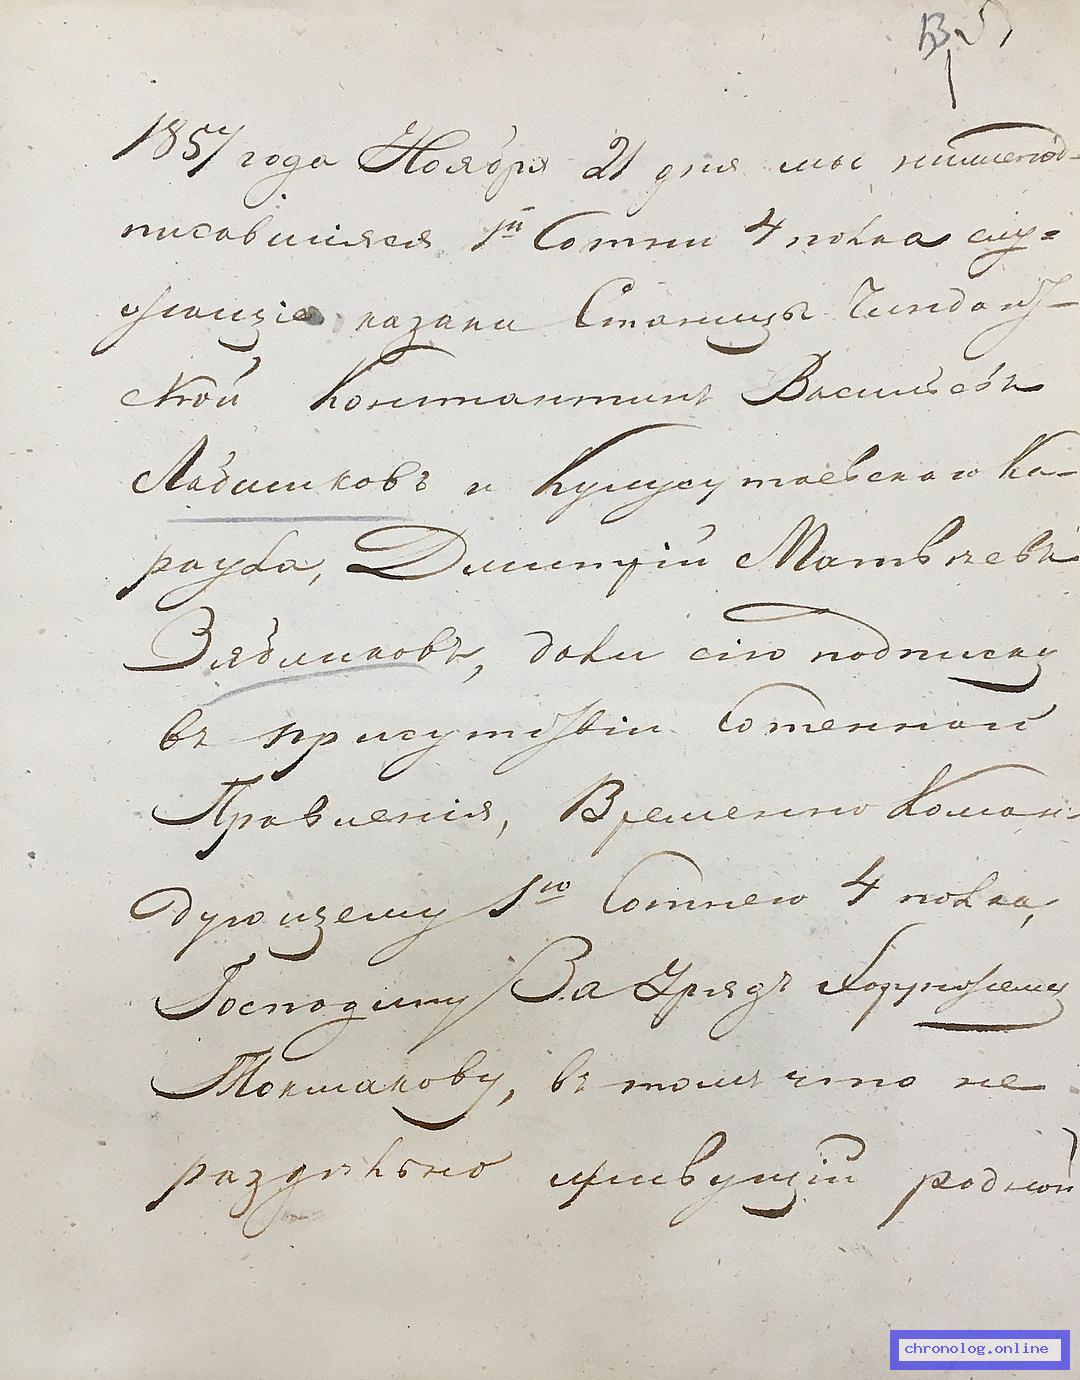 1857 года Ноября 21 дня мы нижепод-
писавшияся 1й Сотни 4 полка слу=
жащіе казаки Станицы Чиндант-
ской Константинъ Васильевъ
и Кулусутаевскаго Ка-
раула, Димитрій Матвѣевъ
Зябликовъ, дали сію подписку
въ присутствіи Сотеннаго
Правленія, Временно Коман-
дующему 1ю Сотнею 4 полка,
Господину За Урядъ Хорунжему
Токмакову, въ томъ что не
раздѣльно живущій родной
chronolog.online